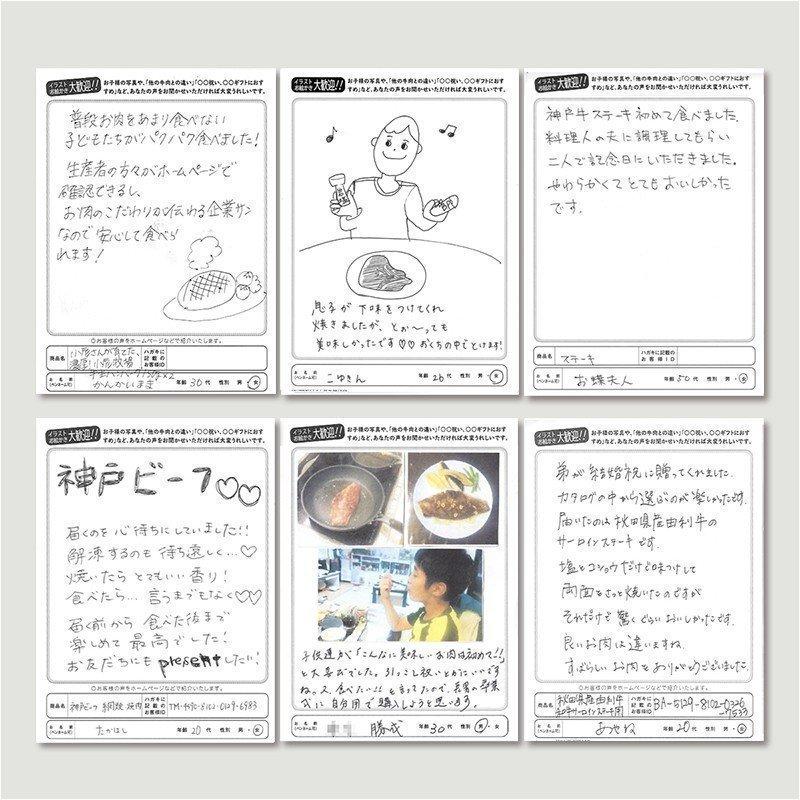 イラスト
お絵かき
大歓迎!!
お子様の写真や、「他の牛肉との違い」「〇〇祝い、〇〇ギフトにおす
すめ」など、あなたの声をお聞かせいただければ大変うれしいです。
普段お肉をあまり食べない
子どもたちがパクパク食べました!
生産者の方々がホームページで
確認できるし、
お肉のこだわりが伝わる企業サン
なので安心して食べら
れます!
◎お客様の声をホームページなどで紹介いたします。
商品名
小形さんが育てた、
ハガキに
記載の
お客様ID
お名前
(ペンネーム可)
かんかいまき
年齢 30代 性別 男・女
イラスト
お絵かき
大歓迎!!
お子様の写真や、「他の牛肉との違い」「〇〇祝い、〇〇ギフトにおす
すめ」など、あなたの声をお聞かせいただければ大変うれしいです。
息子が下味をつけてくれ
焼きましたが、とぉ〜っても
美味しかったです♡♡おくちの中でとけます!
お名前
(ペンネーム可)
こゆきん
年齢 26代 性別 男・女
イラスト
お絵かき
大歓迎!!
お子様の写真や、「他の牛肉との違い」「〇〇祝い、〇〇ギフトにおす
すめ」など、あなたの声をお聞かせいただければ大変うれしいです。
神戸牛ステーキ初めて食べました。
料理人の夫に調理してもらい
二人で記念日にいただきました。
やわらかくてとてもおいしかった
です。
商品名
ステーキ
ハガキに
記載の
お客様ID
お名前
(ペンネーム可)
お蝶夫人
年齢 50代 性別 男・女
イラスト
お絵かき
大歓迎!!
お子様の写真や、「他の牛肉との違い」「〇〇祝い、〇〇ギフトにおす
すめ」など、あなたの声をお聞かせいただければ大変うれしいです。
神戸ビーフ♡♡
届くのを心待ちにしていました!!
解凍するのも待ち遠しく…♡
焼いたらとてもいい香り!
食べたら…言うまでもなく♡♡
届く前から食べた後まで
楽しめて最高でした!
お友だちにもpresentしたい!
◎お客様の声をホームページなどで紹介いたします。
商品名
神戸ビーフ 網焼 焼肉
ハガキに
記載の
お客様ID
TM-4590-8102-0129-6983
お名前
(ペンネーム可)
たかはし
年齢 20代 性別 男・女
イラスト
お絵かき
大歓迎!!
お子様の写真や、「他の牛肉との違い」「〇〇祝い、〇〇ギフトにおす
すめ」など、あなたの声をお聞かせいただければ大変うれしいです。
子供達が「こんなに美味しいお肉は初めて!!」
と大喜びでした。引っこし祝いとかにいいです
ね。又、食べたい!!と言ってたので、長男の卒業
式に自分用で購入しようと思います。
お名前
(ペンネーム可)
勝成
年齢 30代 性別 男・女
イラスト
お絵かき
大歓迎!!
お子様の写真や、「他の牛肉との違い」「〇〇祝い、〇〇ギフトにおす
すめ」など、あなたの声をお聞かせいただければ大変うれしいです。
弟が結婚祝に贈ってくれました。
カタログの中から選ぶのが楽しかったです。
届いたのは秋田県産由利牛の
サーロインステーキです。
塩とコショウだけで味つけして
両面をさっと焼いたのですが
それだけで驚くぐらいおいしかったです。
良いお肉は違いますね。
すばらしいお肉をありがとうございました。
◎お客様の声をホームページなどで紹介いたします。
商品名
秋田県産由利牛
和牛サーロインステーキ用
ハガキに
記載の
お客様ID
BA-5129-8102-0326
-7533
お名前
(ペンネーム可)
あやね
年齢 20代 性別 男・女